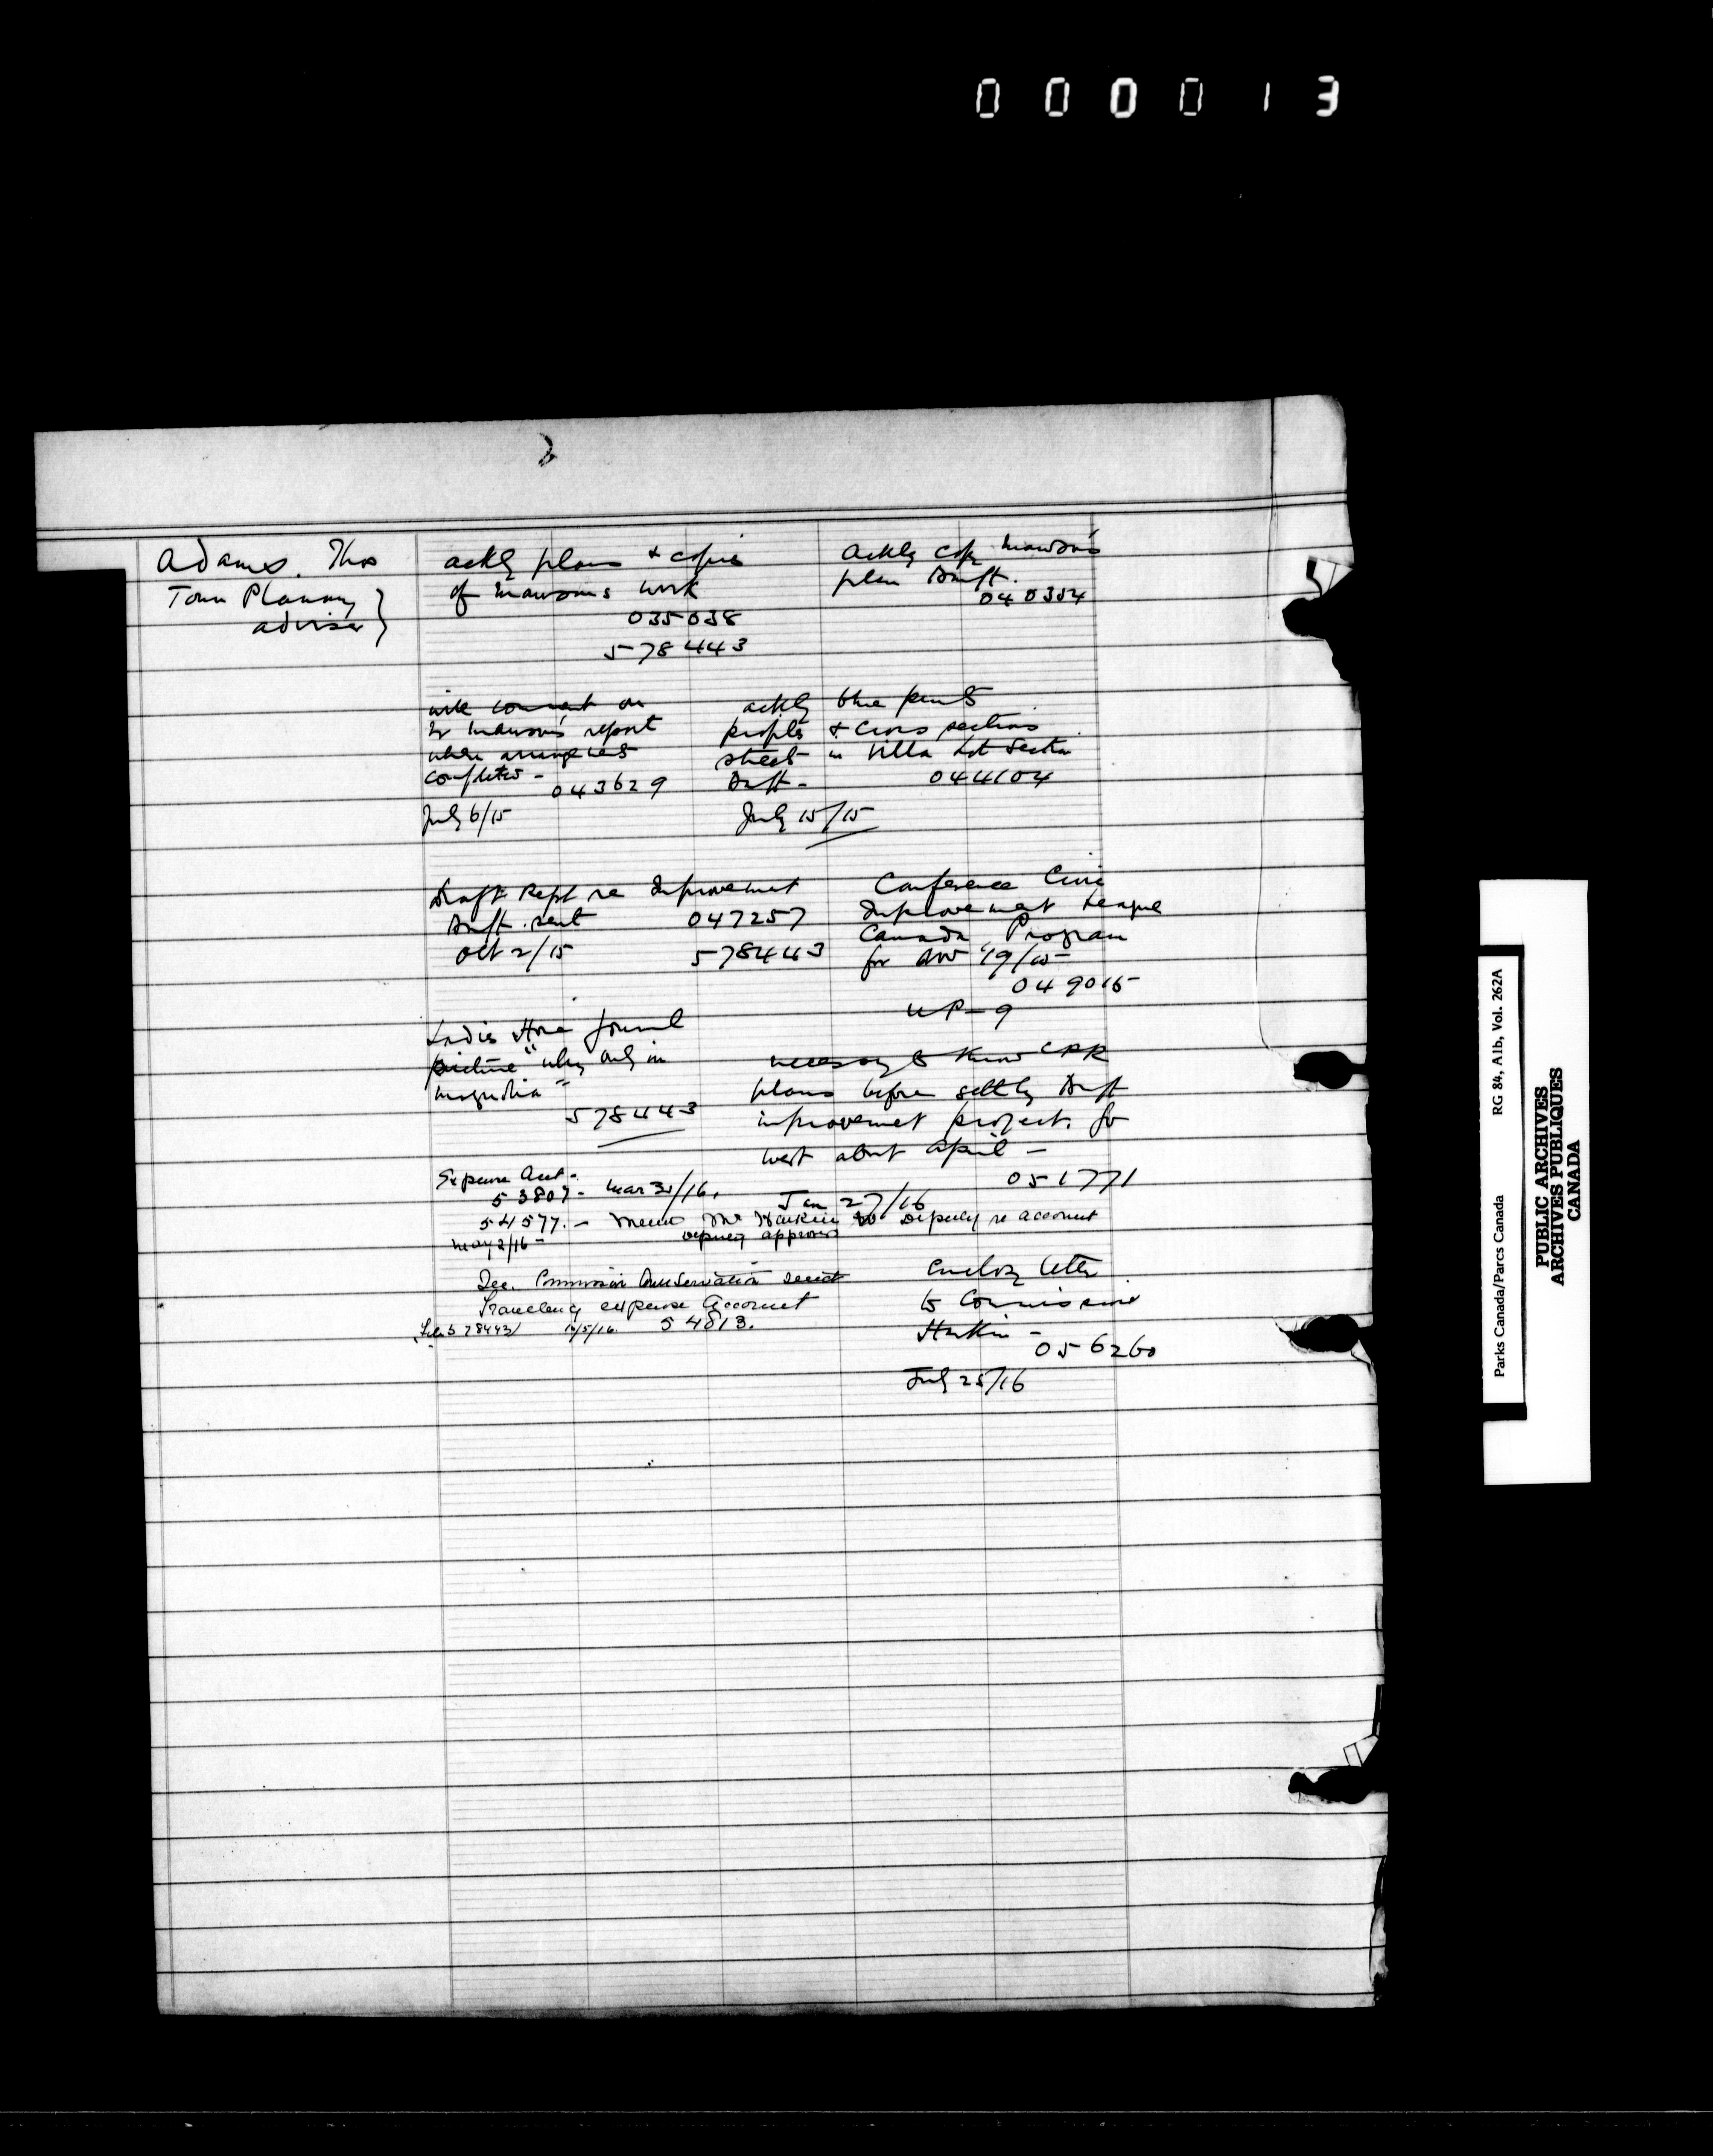 000013
Adams. Thos
Town Planning
adviser
ackg plans + copies
of Mawsons work
035038
578443
Ackg copy Mawson's
plan Banff.
040354
will comment on
Mr Mawson's report
when arrangements
completed -
043629
July 6/15
ackg blue prints
profiles + cross sections
streets in Villa Lot Section
Banff -
044104
July 15/15
Draft Rept re Improvement
Banff. sent
047257
Oct 2/15
578443
Conference Civic
Improvement League
Canada Program
for Nov 19/15
049015
UP-9
Ladies Home Journal
picture "why only in
magnolia"
578443
necessary to know CPR
plans before settling Banff
improvement project. for
west about April -
051771
Jan 27/16
Expense Acct -
53807 - Mar 31/16.
54577. - Memo Mr Harkin to Deputy re account
May 2/16 -
Deputy approves
Commission Conservation sends
Travelling expense account
578443
10/5/16.
54813.
Enclosing letter
to Commissioner
Harkin -
056260
July 25/16
Parks Canada/Parcs Canada
RG 84, A1b, Vol. 262A
PUBLIC ARCHIVES
ARCHIVES PUBLIQUES
CANADA